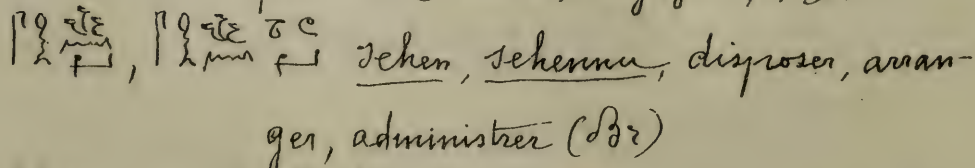 sehen, sehennu, disposer, arran-
ger, administrer (Br)